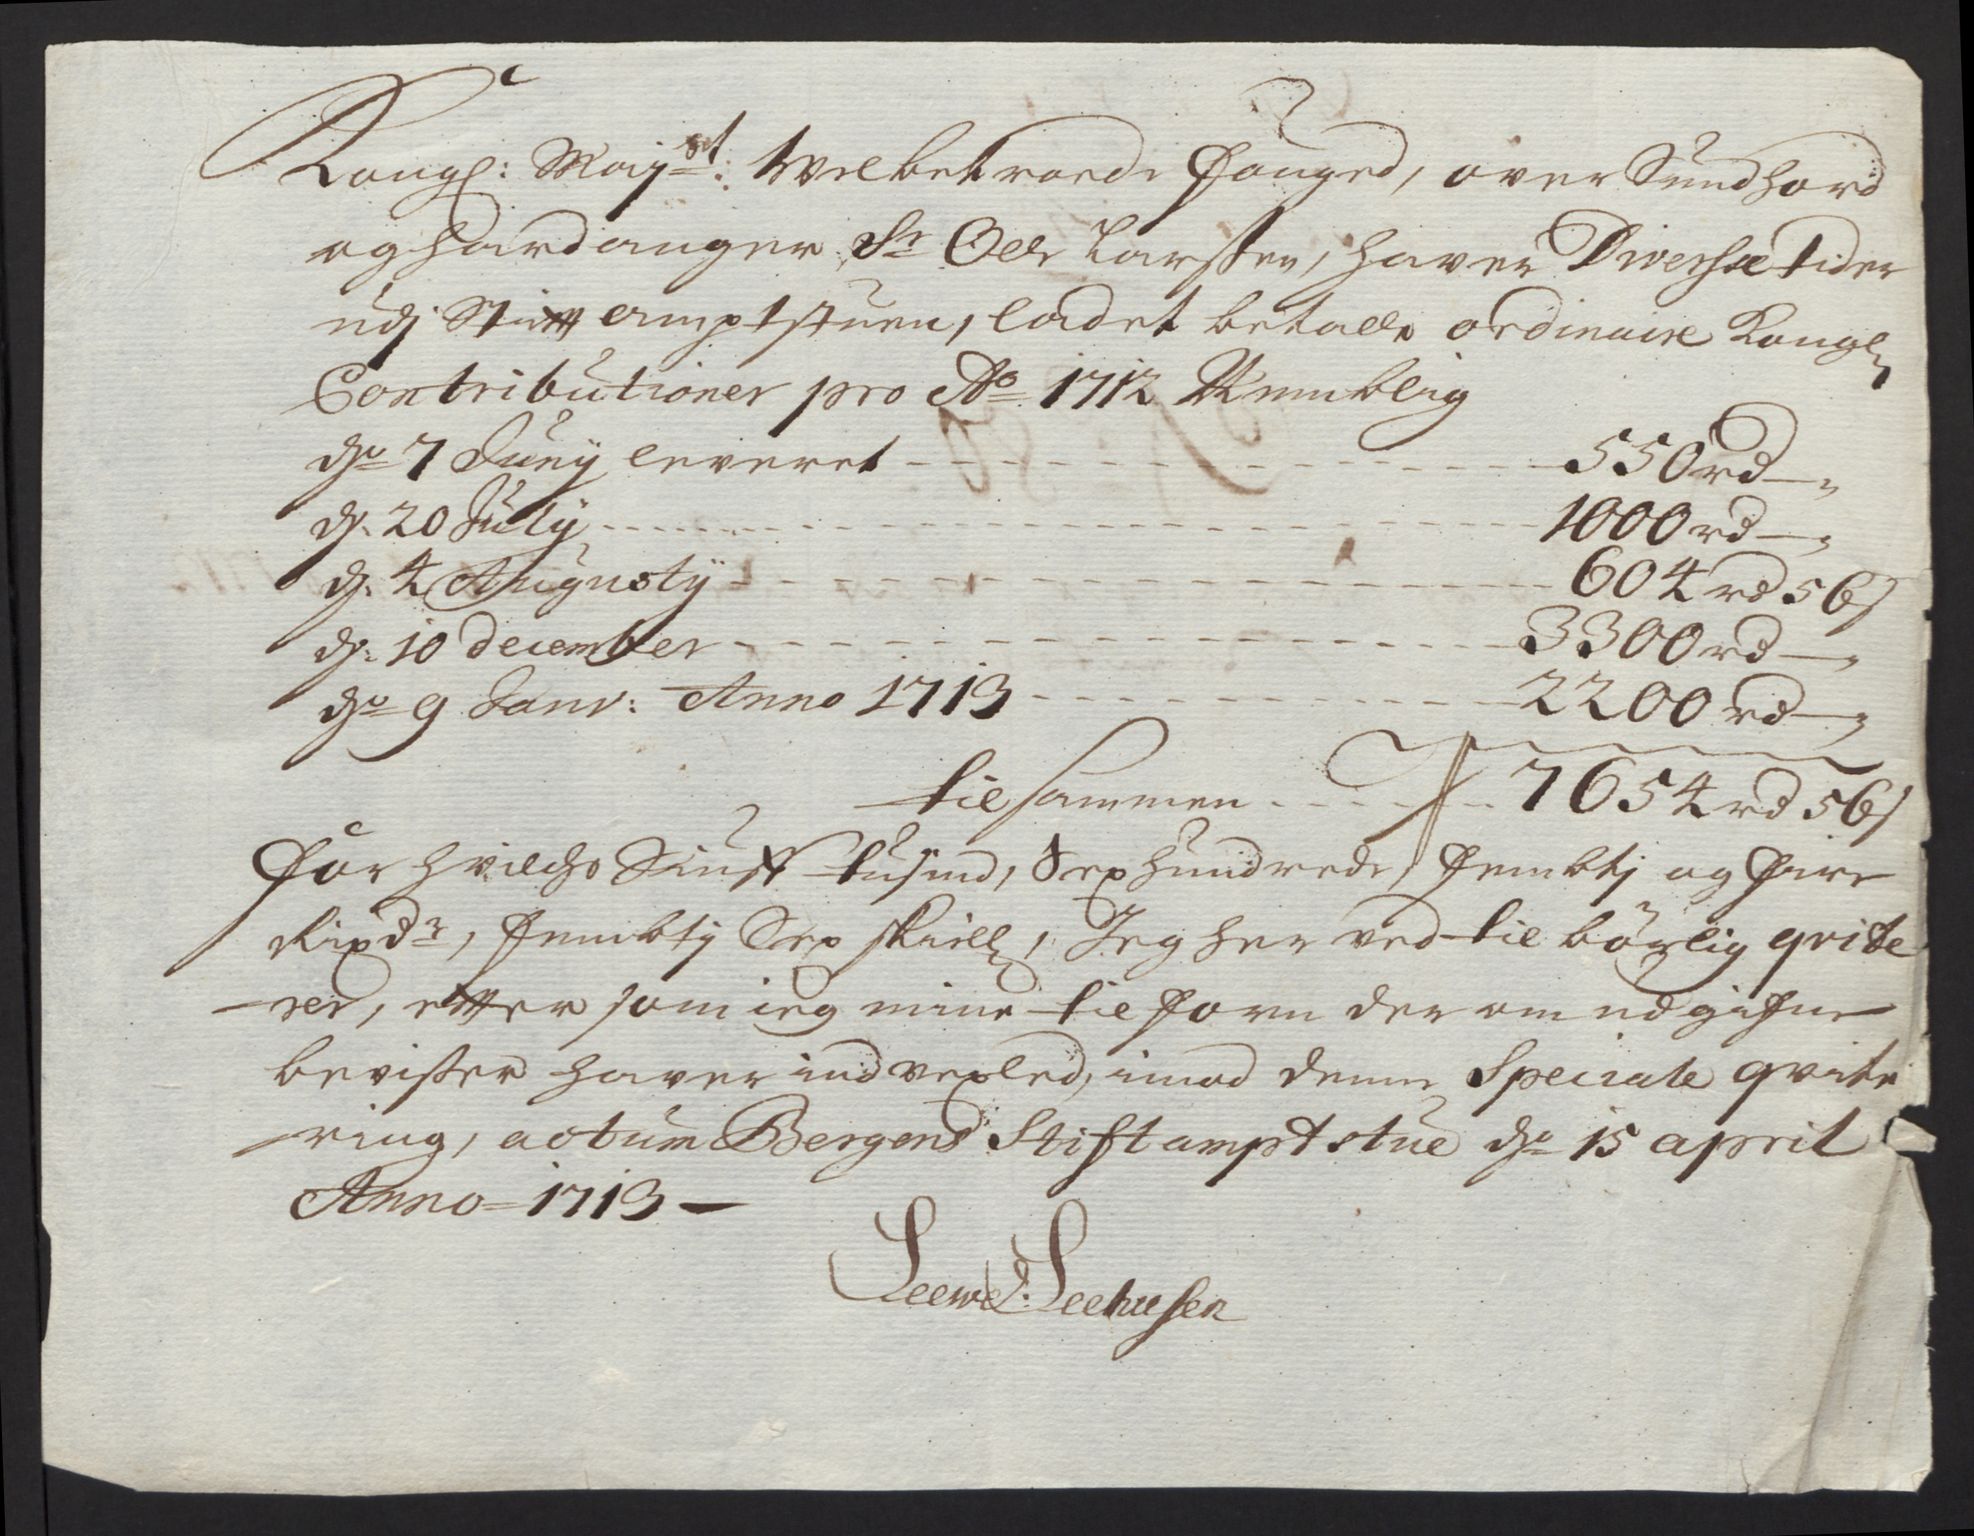 Kongl: Maÿst: Welbetroede Fouged, over Sundhord
og Hardanger Sr Olle Larssen, haver Diverse tider
udj Stiftt amptstuen, ladet betalle ordinaire Kongl
Contributioner pro Ao 1712 Nemblig
do 7 Junÿ leveret - - - 550 rd —„
d. 20 Julÿ - - - 1000 rd —„
d. 4 Augustÿ - - - 604 rd 56 s
d. 10 december - - - 3300 rd —„
do 9 Janv: Anno 1713 - - - 2200 rd —„
tilsammen - - - 7654 rd 56 s
For hvilche Siuf tusind, Sex hundrede, Fembtj og Fire
Rixdr, Fembtÿ Sex skill, Jeg her ved til børlig qvite
rer, etter som ieg mine tilforn der om udgifne
bevisser haver ind vexled, imod denne Speciale qvite
ring, actum Bergens Stiftamptstue do 15 april
Anno 1713 —
Seewe Seehusen